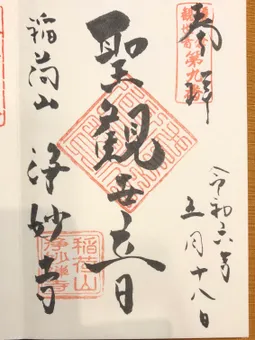 奉拝
第九番
令和六年
五月十八日
聖觀世音
稲荷山
浄妙寺
稲荷山
浄妙禅寺